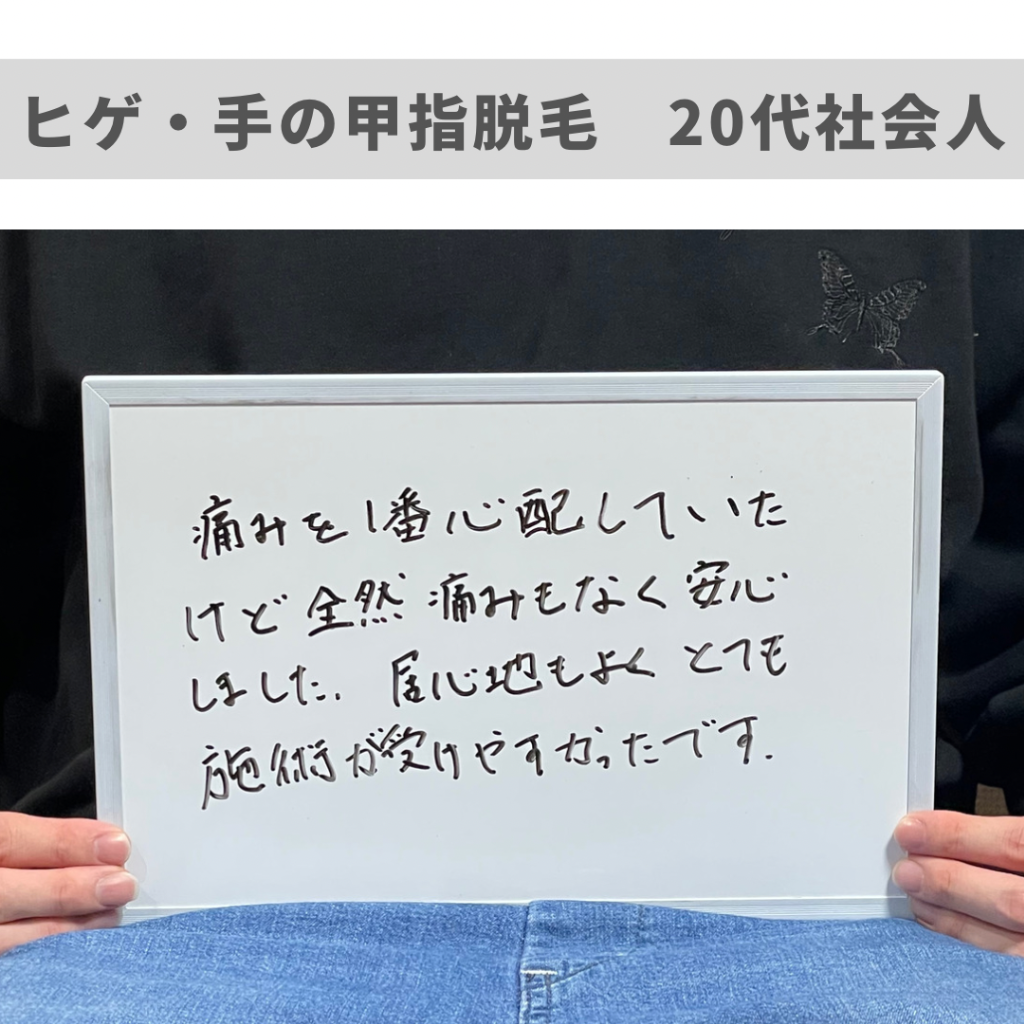 ヒゲ・手の甲指脱毛　20代社会人
痛みを1番心配していた
けど全然痛みもなく安心
しました. 居心地もよく とても
施術が受けやすかったです.